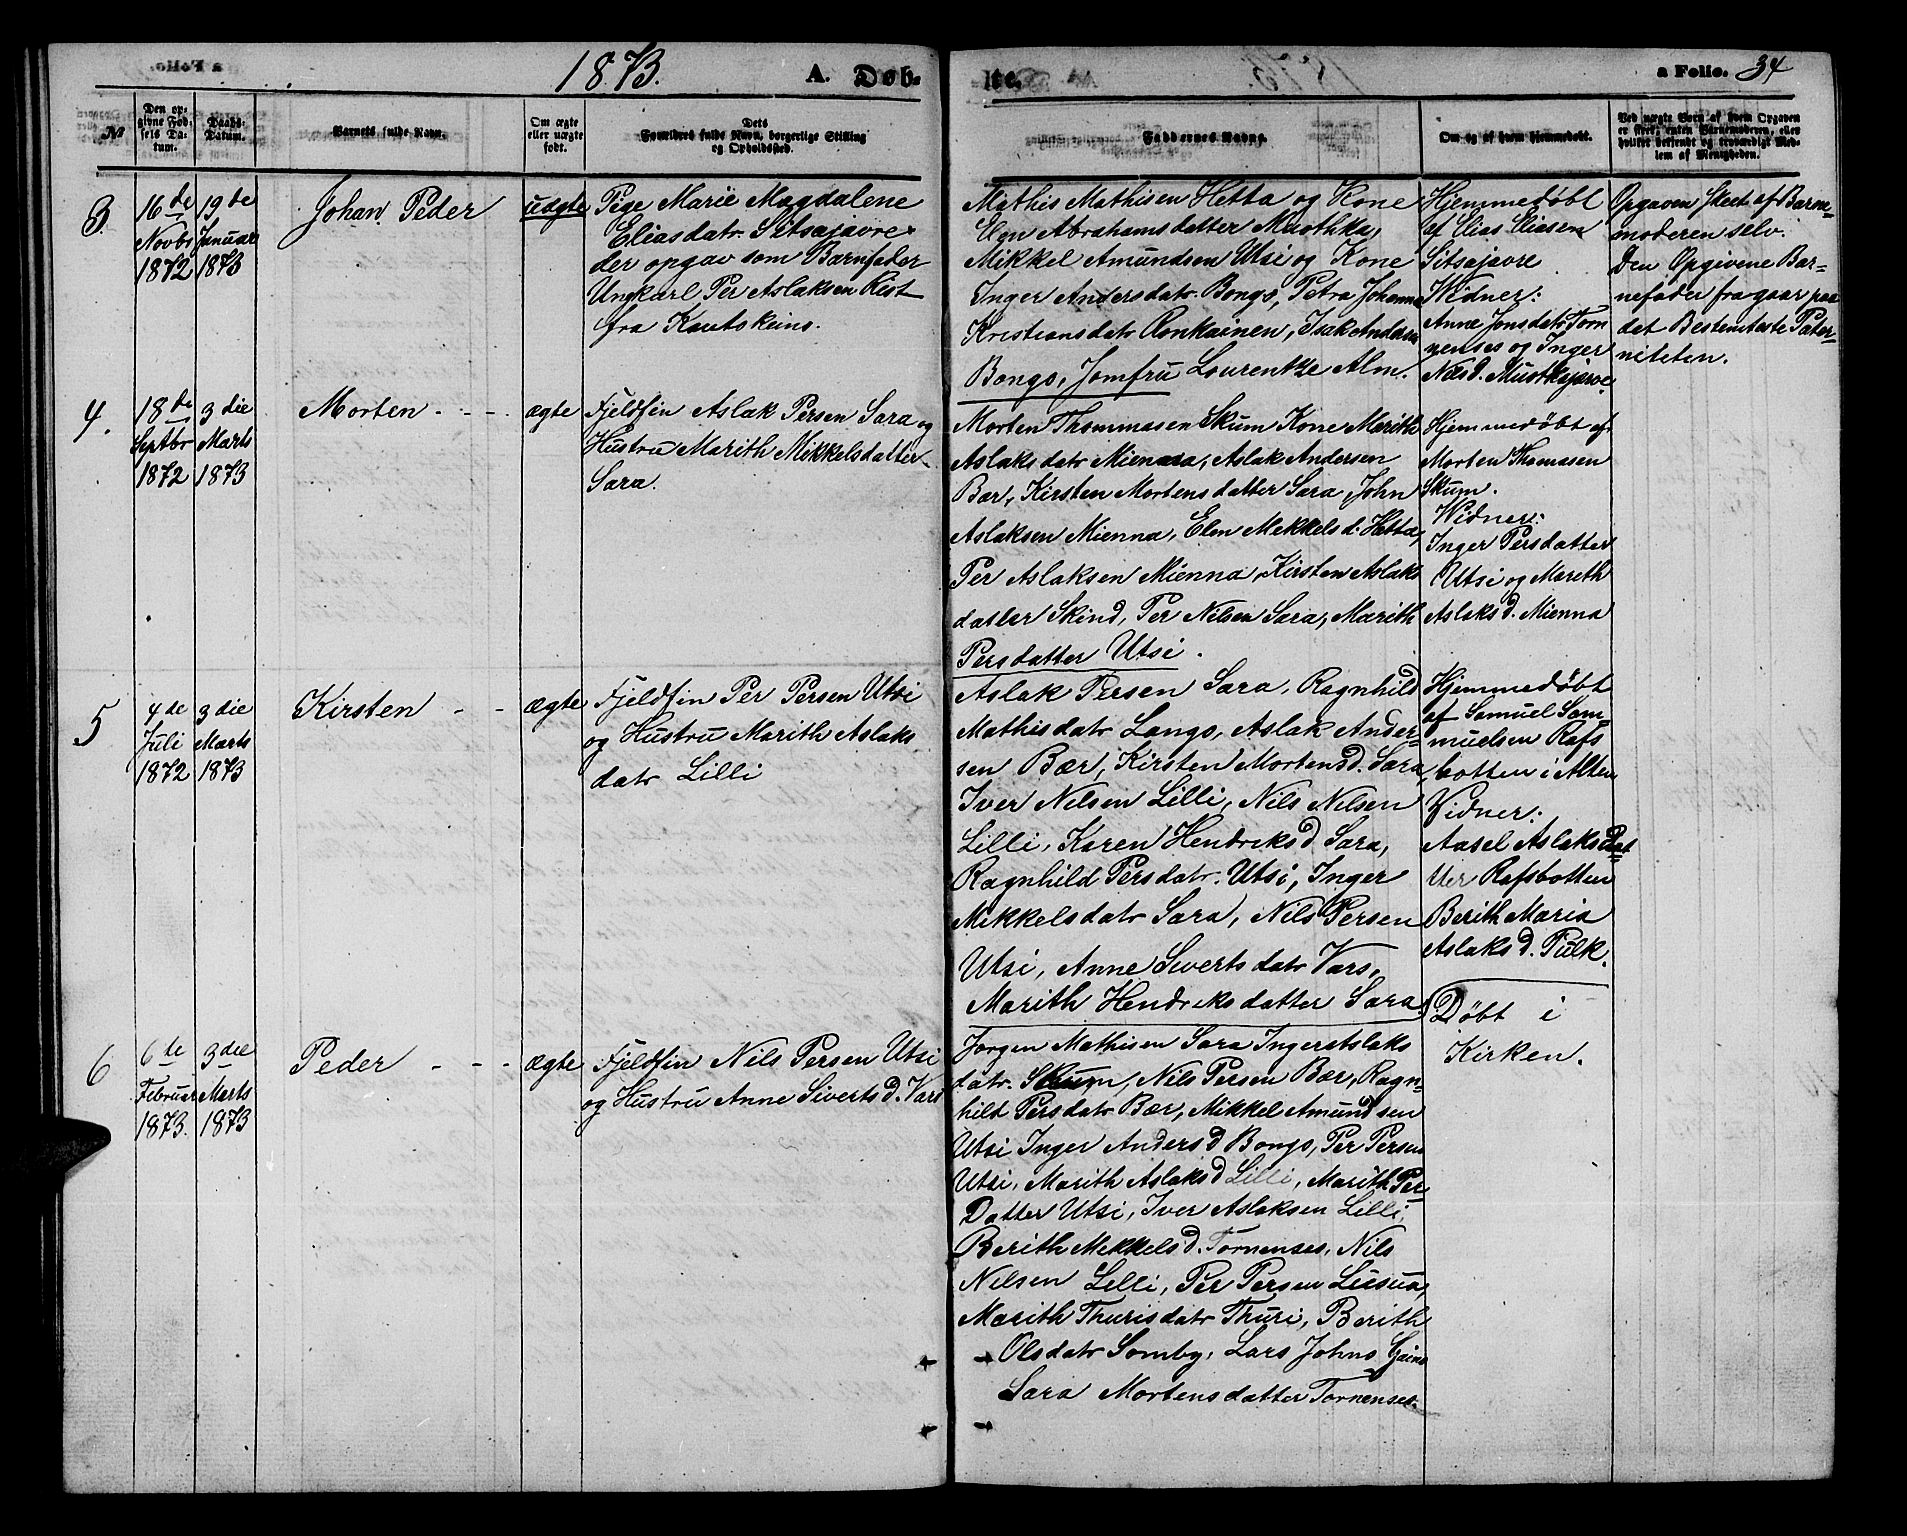 1873. A. Døb-
te.
a Folio. 34
№
Den op-
givne Fød-
sels Da-
tum.
Daabs-
Datum.
Barnets fulde Navn.
Om ægte
eller uægte
født.
Dets
Forældres fulde Navn, borgerlige Stilling
og Opholdssted.
Faddernes Navne.
Om og af hvem hjemmedøbt.
Ved uægte Børn af hvem Opgaven
er skeet, enten Barnemoderen, eller
hvilket bekjendt og troværdigt Med-
lem af Menigheden.
3.
16de
Novbr
1872
19de
Januar
1873
Johan Peder
uægte
Pige Marie Magdalene
Eliasdatr. Sitsajavre
der opgav som Barnfader
Ungkarl Per Aslaksen Rist
fra Kautokeino.
Mathis Mathisen Hetta og Kone
Elen Abrahamsdatter Muothka,
Mikkel Amundsen Utsi og Kone
Inger Andersdatr. Bongo, Petra Johanna
Kristiansdatr Ronkainen, Isak Andersen
Bongo, Jomfru Lourentze Alm.
Hjemmedøbt
af Elias Eliasen
Sitsajavre
Widner:
Anne Jonsdatr Torn
nenses og Inger
Nilsd. Muotkajavre
Opgaven skeet af Barne-
moderen selv.
Den Opgivene Bar-
nefader fragaar paa
det Bestemteste Pater-
niteten.
4.
18de
Septbr
1872
3die
Marts
1873
Morten - - -
ægte
Fjeldfin Aslak Persen Sara og
Hustru Marith Mikkelsdatter
Sara.
Morten Thommasen Skum Kone Marith
Aslaksdatr Mienna, Aslak Andersen
Bær, Kirsten Mortensdatter Sara, John
Aslaksen Mienna, Elen Mekkelsd. Hetta,
Per Aslaksen Mienna, Kirsten Aslaks
datter Skind, Per Nilsen Sara, Marith
Persdatter Utsi.
Hjemmedøbt af
Morten Thomasen
Skum.
Widner:
Inger Persdatter
Utsi og Mareth
Aslaksd. Mienna
5
4de
Juli
1872
3die
Marts
1873
Kirsten - -
ægte
Fjeldfin Per Persen Utsi
og Hustru Marith Aslaks
datr Lilli
Aslak Persen Sara, Ragnhild
Mathisdatr Lango, Aslak Ander-
sen Bær, Kirsten Mortensd. Sara,
Iver Nilsen Lilli, Nils Nilsen
Lilli, Karen Hendriksd Sara,
Ragnhild Persdatr. Utsi, Inger
Mikkelsdatr Sara, Nils Persen
Utsi, Anne Siverts datr Vars,
Marith Hendriksdatter Sara.
Hjemmedøbt
af Samuel Sam-
muelsen Rafs
botten i Alten
Vidner:
Aasel Aslaksdat
ter Rafsbotten
Berith Maria
Aslaksd. Pulk.
6
6te
Februar
1873.
3die
Marts
1873
Peder - - -
ægte
Fjeldfin Nils Persen Utsi
og Hustru Anne Sivertsd. Vars
Jorgen Mathisen Sara Inger Aslaks
datr. Skum, Nils Persen Bær, Ragn-
hild Persdatr Bær, Mikkel Amundsen
Utsi Inger Andersd Bongo, Per Persen
Utsi, Marith Aslaksd Lilli, Marith Per
Datter Utsi, Iver Aslaksen Lilli,
Berith Mekkelsd. Tornenses, Nils
Nilsen Lilli, Per Persen
Marith Thurisdatr Thuri, Berith
Olsdatr Somby, Lars Johns Gaino
Sara Mortensdatter Tornenses.
Døbt i
Kirken.